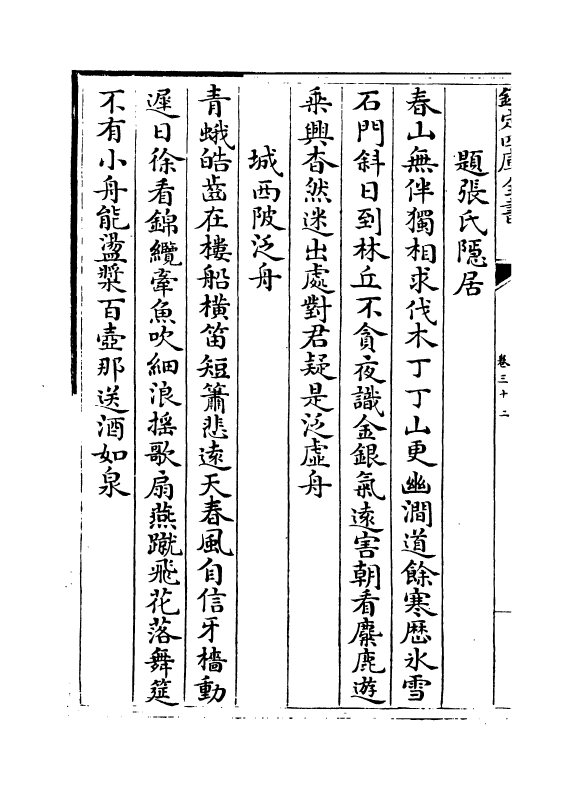 欽定四庫全書
卷三十二
題張氏隱居
春山無伴獨相求伐木丁丁山更幽澗道餘寒歷氷雪
石門斜日到林丘不貪夜識金銀氣逺害朝看麋鹿遊
乘興杳然迷出處對君疑是泛虛舟
城西陂泛舟
青蛾皓齒在樓船橫笛短簫悲逺天春風自信牙檣動
遲日徐看錦纜牽魚吹細浪摇歌扇燕蹴飛花落舞筵
不有小舟能盪槳百壺那送酒如泉